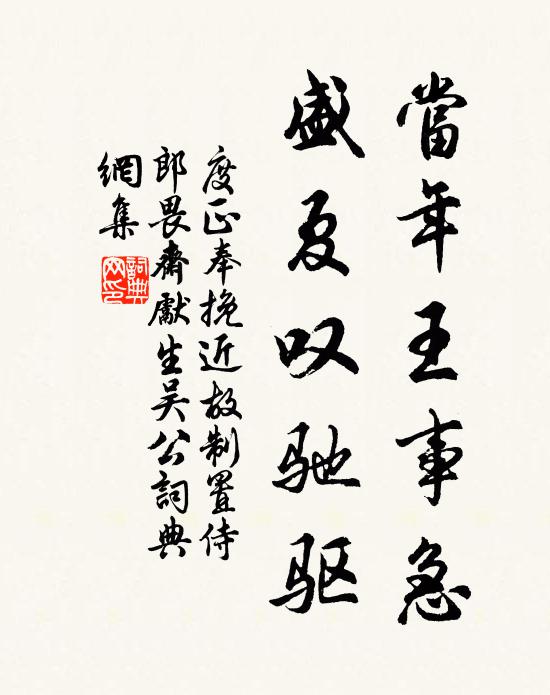 當年王事急
盛夏叹驰驱
度正奉挽近故制置侍
郎畏齋獻生吴公詞典
網集
詞典網印